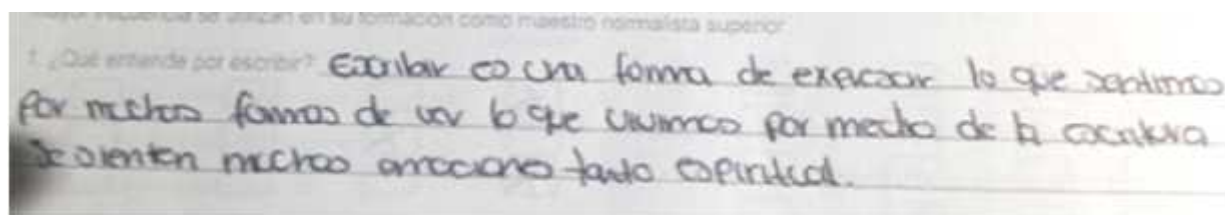 mayor frecuencia se utilizan en su formación como maestro normalista superior
1. ¿Qué entiende por escribir? Escribir es una forma de expresar lo que sentimos
por muchas formas de ver lo que vivimos por medio de la escritura
se sienten muchas emociones tanto espiritual.